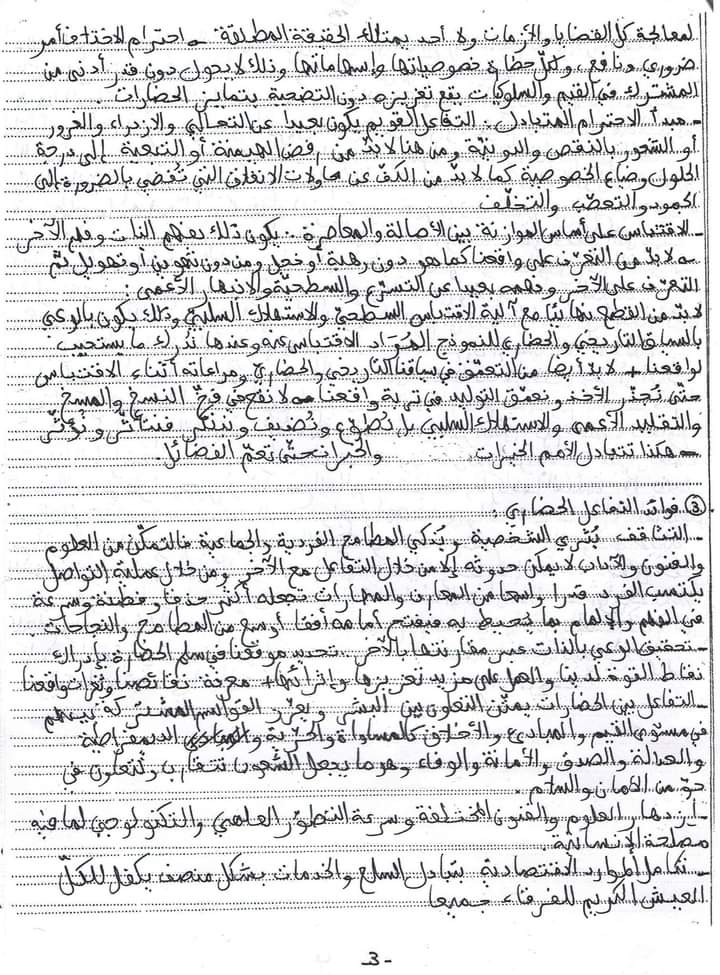 لمعالجة كل القضايا والأزمات ولا أحد يمتلك الحقيقة المطلقة - احترام الاختلاف أمر
ضروري ونافع، ولكل حضارة خصوصياتها وإسهاماتها وذلك لا يحول دون قدر أدنى من
المشترك في القيم والسلوكيات يقع تعزيزه دون التضحية بتمايز الحضارات.
- مبدأ الاحترام المتبادل: التفاعل القويم يكون بعيدا عن التعالي والازدراء والغرور
أو الشعور بالنقص والدونية ومن هنا لا بد من رفض الهيمنة أو التبعية إلى درجة
الحلول وضياع الخصوصية كما لا بد من الكف عن محاولات الانغلاق التي تفضي بالضرورة إلى
الجمود والتعصب والتخلف
- الاقتباس على أساس الموازنة بين الأصالة والمعاصرة: يكون ذلك بفهم الذات وفهم الآخر
- لا بد من التعرف على واقعنا كما هو دون رهبة أو خجل ومن دون تهوين أو تهويل ثم
التعرف على الآخر وفهمه بعيدا عن التسرع والسطحية والانبهار الأعمى:
لا بد من القطع نهائيا مع آلية الاقتباس السطحي والاستهلاك السلبي وذلك يكون بالوعي
بالسياق التاريخي والحضاري للنموذج المراد الاقتباس عنه وعندها ندرك ما يستجيب
لواقعنا + لا بد أيضا من التعمق في سياقنا التاريخي والحضاري ومراعاته أثناء الاقتباس
حتى نجذر الأخذ ونعمق التوليد في تربة واقعنا فلا نقع في فخ النسخ والمسخ
والتقليد الأعمى والاستهلاك السلبي بل نطوع ونضيف ونبتكر فنتأثر ونؤثر
- هكذا تتبادل الأمم الخبرات والخبرات حتى تعم الفضائل.
③ فوائد التفاعل الحضاري:
- التثاقف يثري الشخصية ويذكي المطامح الفردية والجماعية فالتمكن من العلوم
والفنون والآداب لا يمكن حدوثه إلا من خلال التفاعل مع الآخر ومن خلال عملية التواصل
يكتسب الفرد قدرا واسعا من المعارف والمهارات تجعله أكثر حذقا وفطنة وسرعة
في الفهم والإلمام بما يحيط به فيفتح أمامه أفقا أوسع من المطامح والنجاحات
- تحقيق الوعي بالذات عبر مقارنتها بالآخر. تحديد موقعنا في سلم الحضارة بإدراك
نقاط القوة لدينا والعمل على مزيد تعزيزها وإثرائها + معرفة نقائصنا وثغرات واقعنا
- التفاعل بين الحضارات يمتن التعاون بين البشر ويعزز القواسم المشتركة بينهم
في مستوى القيم والمبادئ والأخلاق كالمساواة والحرية والمبادئ الديمقراطية
والعدالة والصدق والأمانة والوفاء وهو ما يجعل الشعوب تتقارب وتتعاون في
جو من الأمان والسلام.
- ازدهار العلوم والفنون المختلفة وسرعة التطور العلمي والتكنولوجي لما فيه
مصلحة الإنسانية.
- تكامل الموارد الاقتصادية بتبادل السلع والخدمات بشكل منصف يكفل للكل
العيش الكريم للفرقاء جميعا
-3-